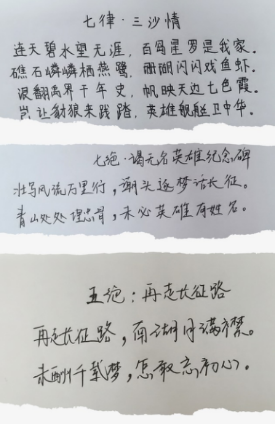 七律·三沙情
连天碧水望无涯，百岛星罗是我家。
礁石嶙嶙栖燕鹭，珊瑚闪闪戏鱼虾。
浪翻禹界千年史，帆映天边七色霞。
岂让豺狼来践踏，英雄舰艇卫中华。
七绝·谒无名英雄纪念碑
壮写风流万里行，潮头逐梦话长征。
青山处处埋忠骨，未必英雄有姓名。
五绝：再走长征路
再走长征路，南湖月满襟。
未酬千载梦，怎敢忘初心。